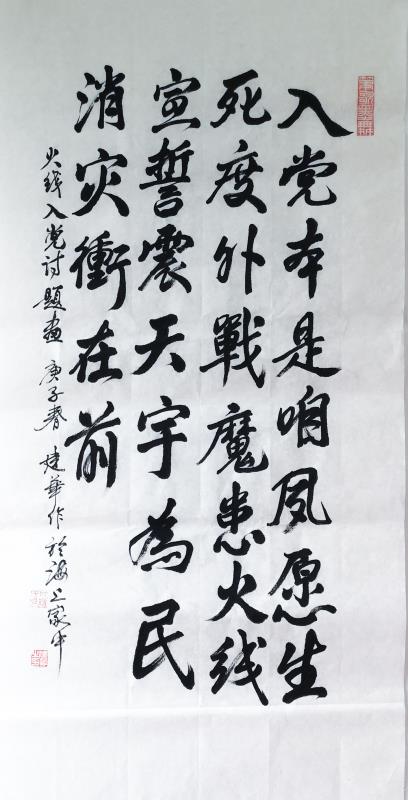 入党本是咱夙愿生
死度外戰魔患火线
宣誓震天宇为民
消灾衝在前
火线入党诗題画 庚子春 建華作於海上家中